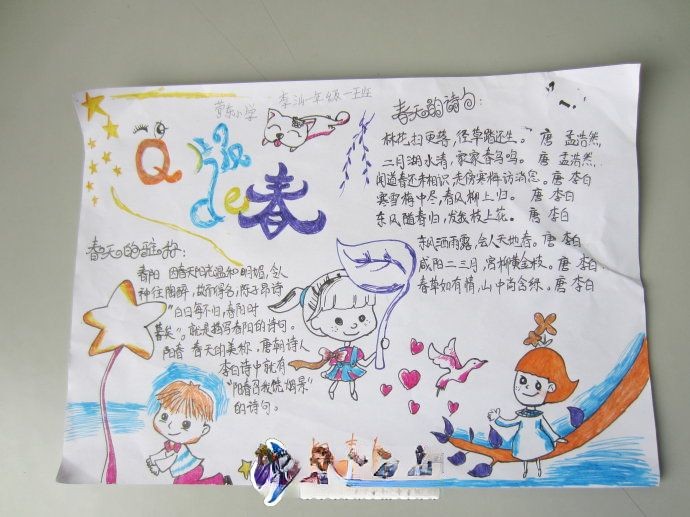 营东小学 李 一年级一班
Q
de春
春天的诗句：
林花扫更落，径草踏还生。 唐 孟浩然，
二月湖水清，家家春鸟鸣。 唐 孟浩然，
闻道春还未相识，走傍寒梅访消息。 唐 李白
寒雪梅中尽，春风柳上归。 唐 李白
东风随春归，发我枝上花。 唐 李白
东风洒雨露，会入天地春。唐 李白
咸阳二三月，宫柳黄金枝。唐 李白，
春草如有情，山中尚含绿。唐 李白
春天的雅称：
春阳 因春天阳光温和明媚，令人
神往陶醉，故而得名，陈子昂诗
“白日每不归，春阳时
暮矣”。就是描写春阳的诗句。
阳春 春天的美称，唐朝诗人
李白诗中就有
“阳春召我烟景”
的诗句。